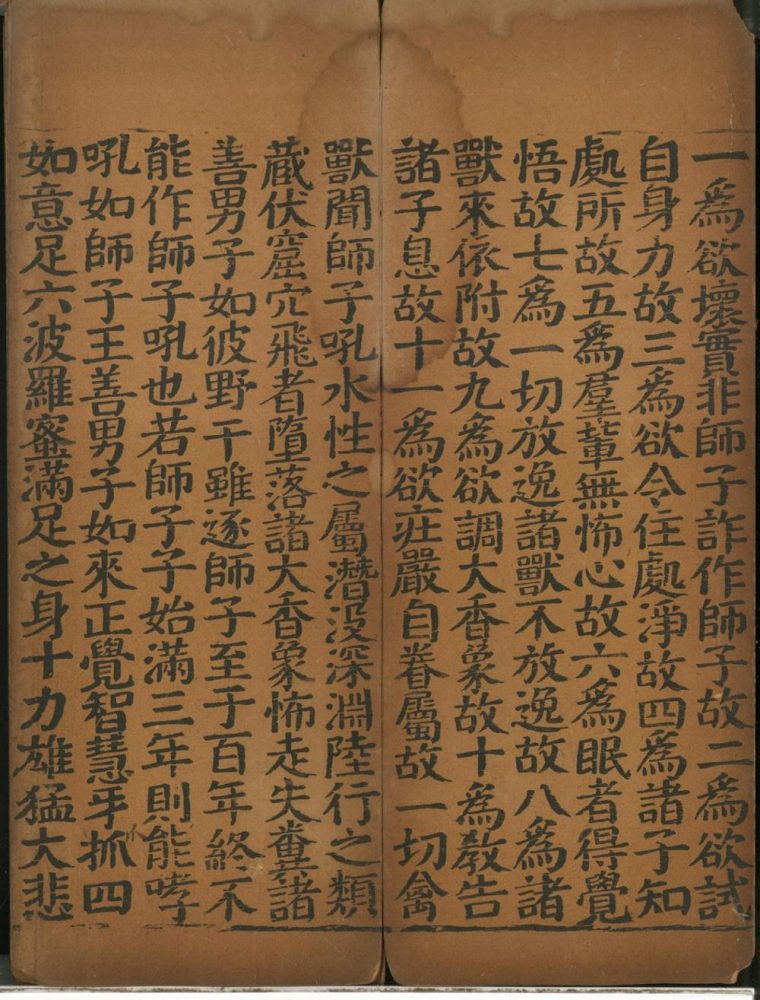 一為欲壞實非師子詐作師子故二為欲試
自身力故三為欲令住處淨故四為諸子知
處所故五為羣輩無怖心故六為眠者得覺
悟故七為一切放逸諸獸不放逸故八為諸
獸來依附故九為欲調大香象故十為教告
諸子息故十一為欲庄嚴自眷屬故一切禽
獸聞師子吼水性之屬潛没深淵陸行之類
藏伏窟穴飛者墮落諸大香象怖走失糞諸
善男子如彼野干雖逐師子至于百年終不
能作師子吼也若師子子始滿三年則能哮
吼如師子王善男子如來正覺智慧牙抓四
如意足六波羅蜜滿足之身十力雄猛大悲